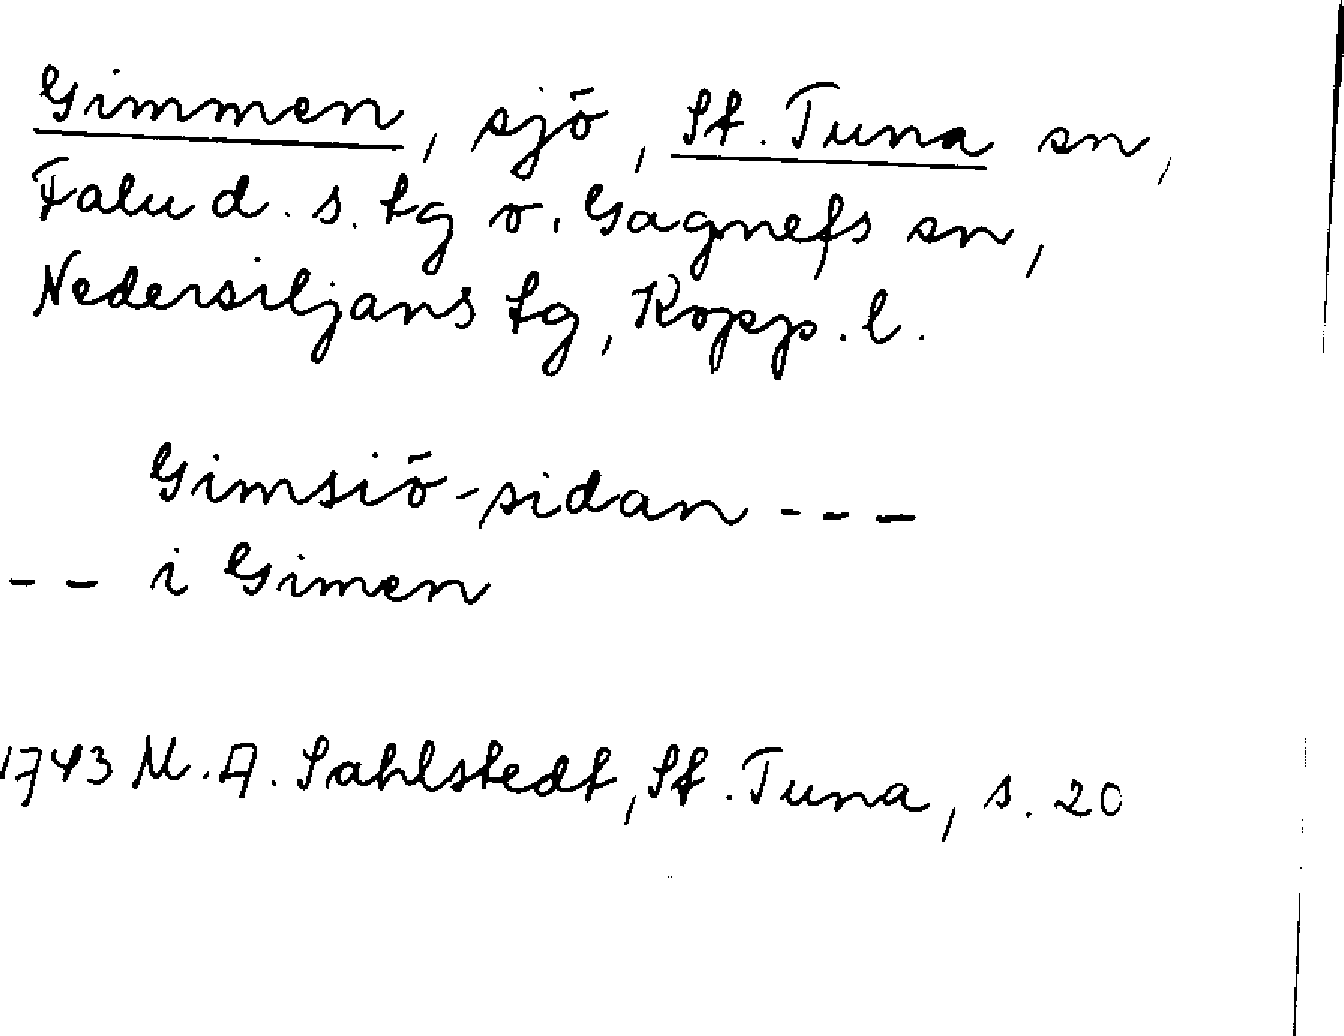 Gimmen, sjö, St. Tuna sn,
Falu d. s. tg o. Gagnefs sn,
Nedersiljans tg, Kopp. l.
Gimsiö-sidan ---
-- i Gimen
1743 M. A. Sahlstedt, St. Tuna, s. 20